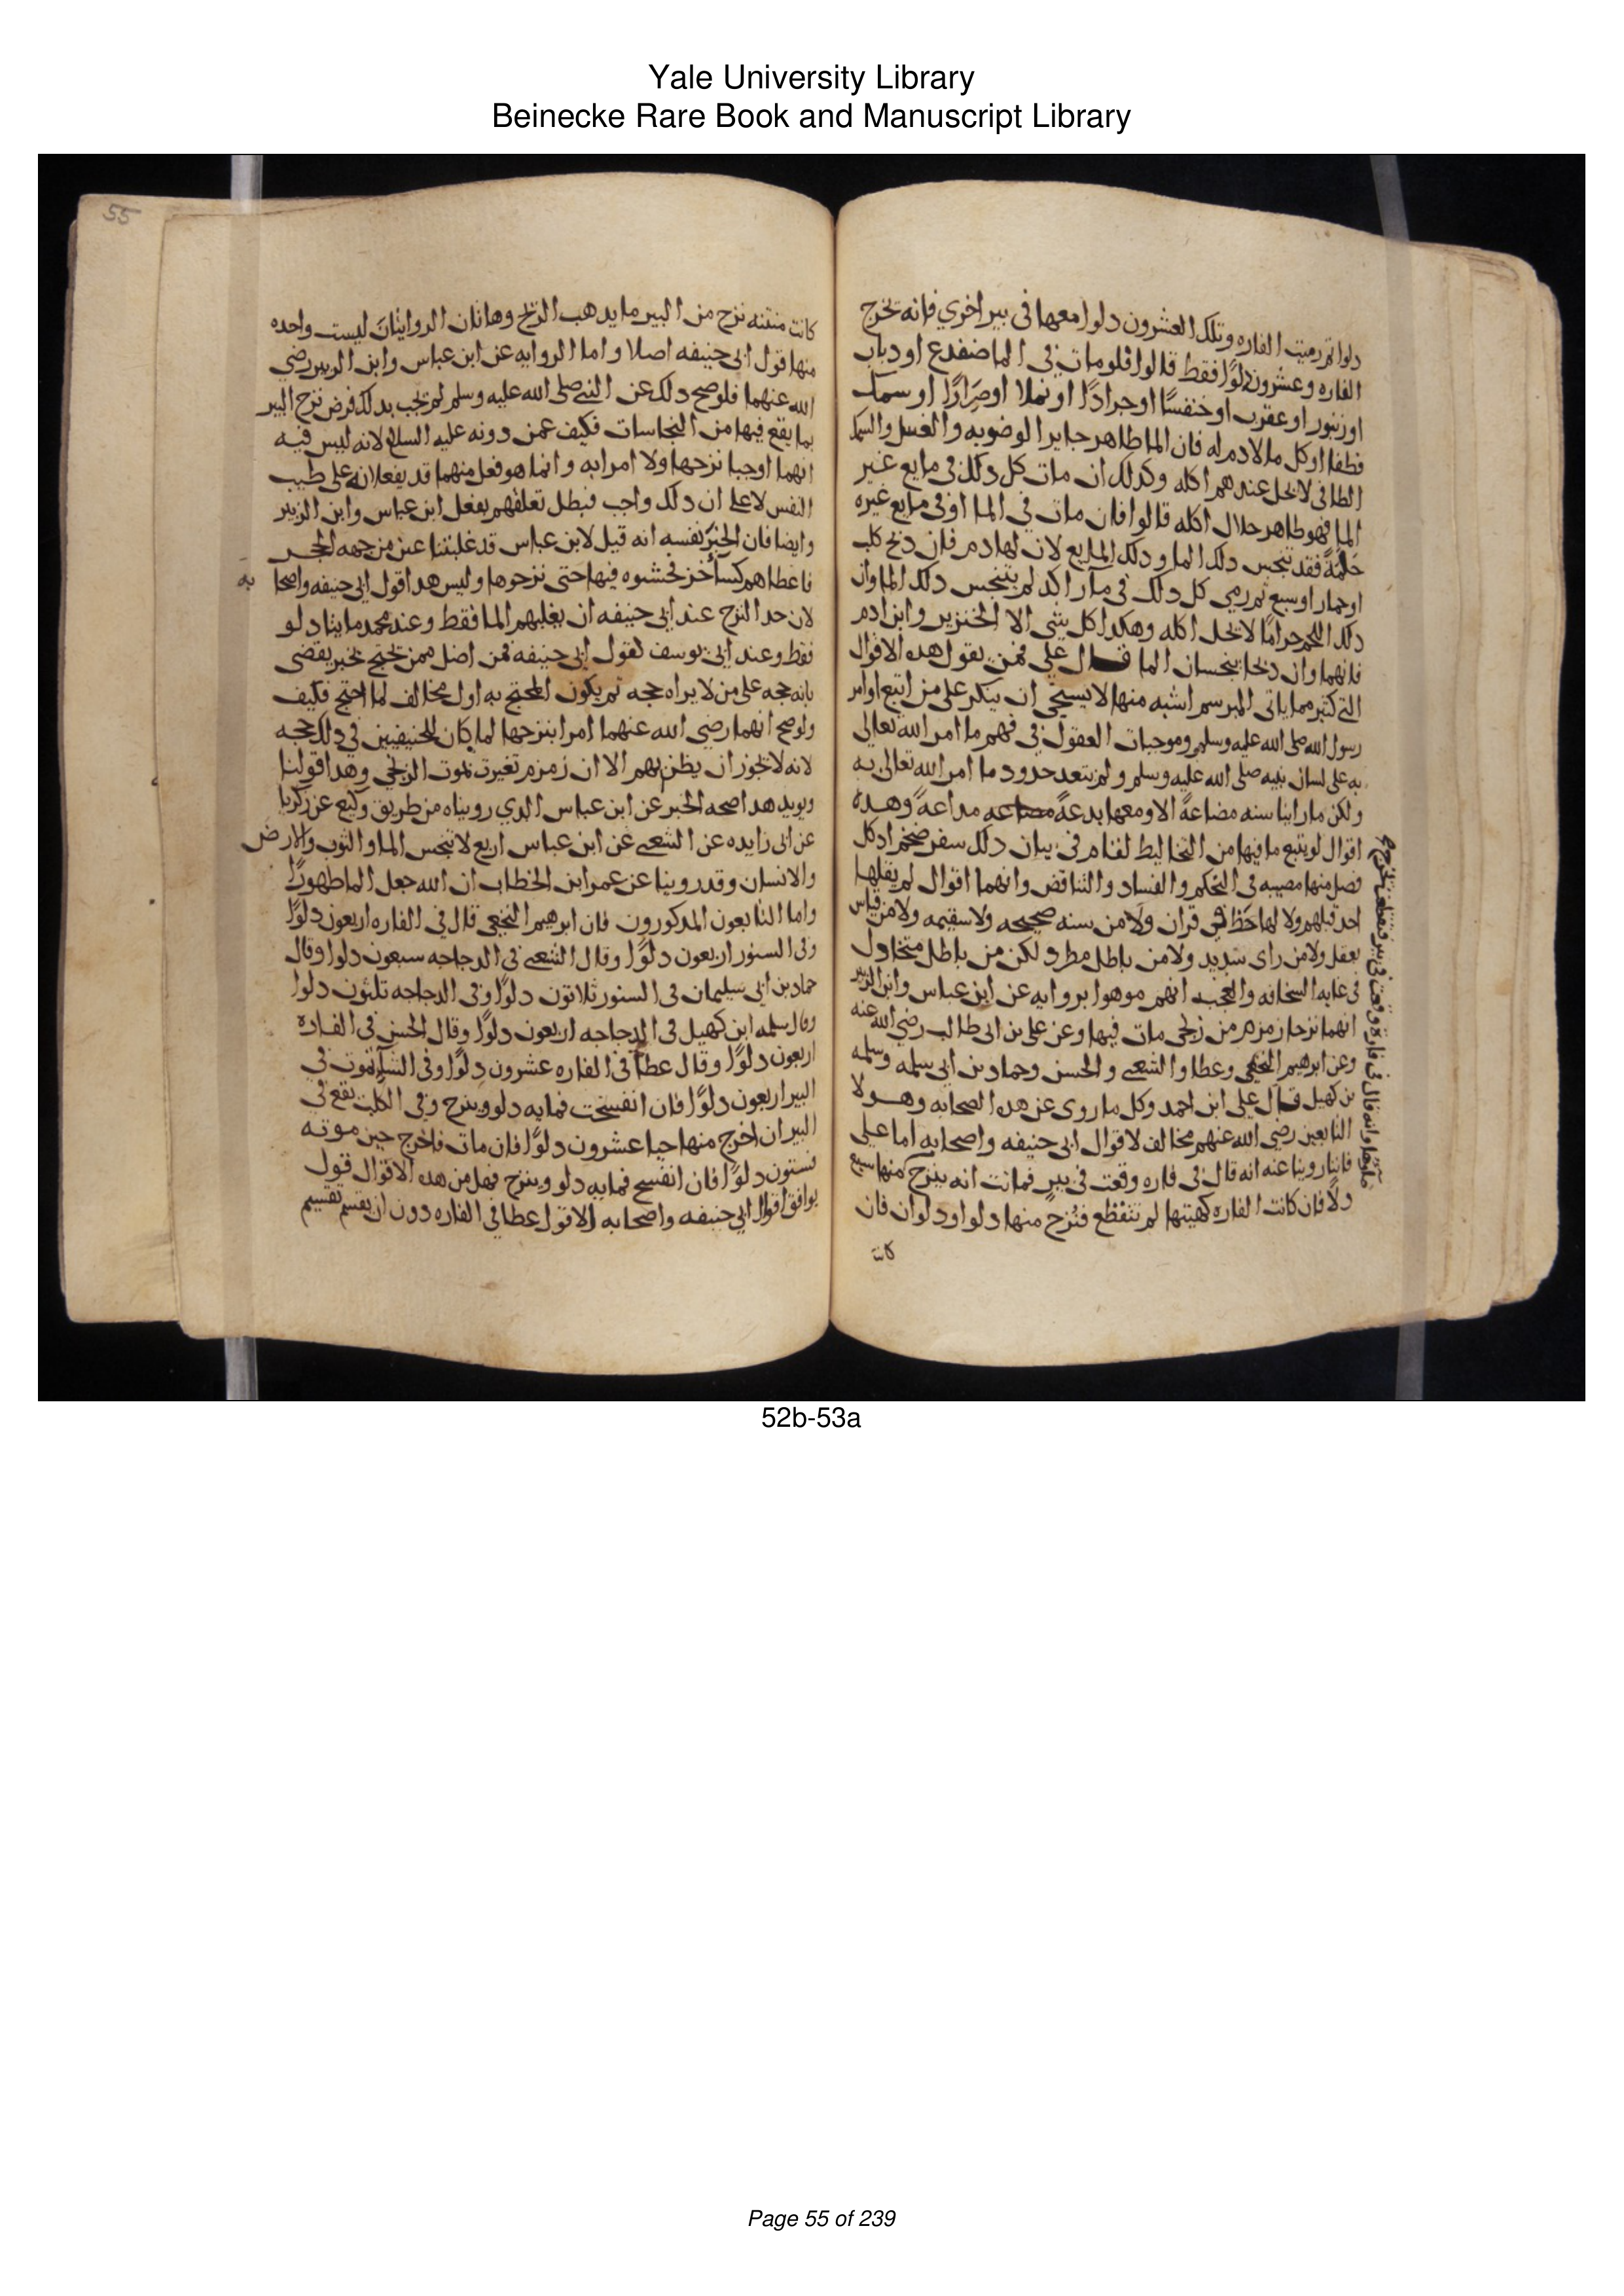 Yale University Library
Beinecke Rare Book and Manuscript Library
دلوا ثم رميت الفاره وتلك العشرون دلوا معها في بير اخري فانه تخرج
الفاره وعشرون دلوًا فقط قالوا فلو مات في الما ضفدع او دباب
او زنبور او عقرب او خنفسًا او جرادًا او نملا او صَرارًا او سمك
فطفا او كل ما لا دم له فان الما طاهر جايز الوضو به والغسل والسمك
الطافي لا يحل عندهم اكله وكدلك ان مات كل دلك في مايع غير
الما فهو طاهر حلال اكله قالوا فان مات في الما او في مايع غيره
حَلَمَةً فقد تنجس دلك الما ودلك المايع لان لها دم فان دبح كلب
او حمار او سبع ثم رمي كل دلك في مآ راكد لم يتنجس دلك الما وان
دلك اللحم حرامًا لا يحل اكله وهكدا كل شي الا الخنزير وابن ادم
فانهما وان دبحا ينجسان الما قال علي فمن يقول هده الاقوال
التي كثير مما ياتي المبرسم اشبه منها لا يستحي ان ينكر على من اتبع اوامر
رسول الله صلى الله عليه وسلم وموجبات العقول في فهم ما امر الله تعالى
به على لسان نبيه صلى الله عليه وسلم ولم يتعد حدود ما امر الله تعالى به
ولكن ما راينا سنه مضاعةً الا ومعها بدعةً مداعةً وهده
اقوال لو يتبع ما فيها من التخاليط لقام في بيان دلك سفر ضخم ادكل
فصل منها مصيبه في التحكم والفساد والتناقض وانهما اقوال لم يقلها
احد قبلهم ولا لها حَظ من قران ولا من سنه صحيحه ولا سقيمه ولا من قياس
يعقل ولا من راى سديد ولا من باطل مطرد لكن من باطل متخادل
في غايه السخافه والعجب انهم موهوا بروايه عن ابن عباس وابن الزبير
انهما نزحا زمزم من زنجي مات فيها وعن علي بن ابى طالب رضي الله عنه
وعن ابرهيم النخعي وعطا والشعبي والحسن وحماد بن ابى سلمه وسلمه
بن كهيل قال علي ابن احمد وكل ما روى عن هدا الصحابه وهولا
التابعين رضي الله عنهم مخالف لاقوال ابى حنيفه واصحابه اما علي
فاننا روينا عنه انه قال في فاره وقعت في بير فماتت انه ينزح منها سبع
دلآ فان كانت الفاره كهيتها لم تتقطع فنُزح منها دلو او دلوان فان
كانت
كانت منتنه نزح من البير ما يدهب الريح وهاتان الروايتان ليست واحده
منها قول ابى حنيفه اصلا واما الروايه عن ابن عباس وابن الزبير رضي
الله عنهما فلو صح دلك عن النبي صلى الله عليه وسلم لم يجب بدلك فرض نزح البير
بما يقع فيها من النجاسات فكيف عمن دونه عليه السلام لانه ليس فيه
انهما اوجبا نزحها ولا امرا به وانما هو فعل منهما قد يفعلانه على طيب
النفس لا على ان دلك واجب فبطل تعلقهم بفعل ابن عباس وابن الزبير
وايضا فان الخبر نفسه انه قيل لابن عباس قد غلبتنا عين من جهه الحجر
فاعطاهم كسآ خز فحشوه فيها حتى نزحوها وليس هدا قول ابى حنيفه واصحا به
لان حد النزح عند ابى حنيفه ان يغلبهم الما فقط وعند محمد مايتا دلو
فقط وعند ابى يوسف كقول ابى حنيفه فمن اضل ممن يحتج بخبر يقضي
بانه حجه على من لا يراه حجه ثم يكون المحتج به اول مخالف لما احتج فكيف
ولو صح انهما رضي الله عنهما امرا بنزحها لما كان للحنيفيين في دلك حجه
لانه لا يجوز ان يظن بهم الا ان زمزم تغيرت بموت الزنجي وهدا قولنا
ويويد هدا صحه الخبر عن ابن عباس الدي رويناه من طريق وكيع عن زكريا
عن ابى زايده عن الشعبي عن ابن عباس اربع لا تنجس الما والثوب والارض
والانسان وقد روينا عن عمر ابن الخطاب ان الله جعل الما طهورًا
واما التابعون المدكورون فان ابرهيم النخعي قال في الفاره اربعون دلوًا
وفى السنور اربعون دلوًا وقال الشعبي في الدجاجه سبعون دلوا وقال
حماد بن ابي سليمان في السنور ثلاثون دلوًا وفي الدجاجه تلثون دلوا
وقال سلمه ابن كهيل في الدجاجه اربعون دلوًا وقال الحسن في الفاره
اربعون دلوًا وقال عطآ في الفاره عشرون دلوًا وفى الشآه تموت في
البير اربعون دلوًا فان انفسخت فمايه دلو وينزح وفي الكلب يقع في
البير ان اخرج منها حيا عشرون دلوًا فان مات فاخرج حين موته
فستون دلوًا فان انفسخ فمايه دلو وينزح فهل من هده الاقوال قول
يوافق اقوال ابي حنيفه واصحابه الا قول عطا في الفاره دون ان يقسم تقسيم
55
52b-53a
Page 55 of 239